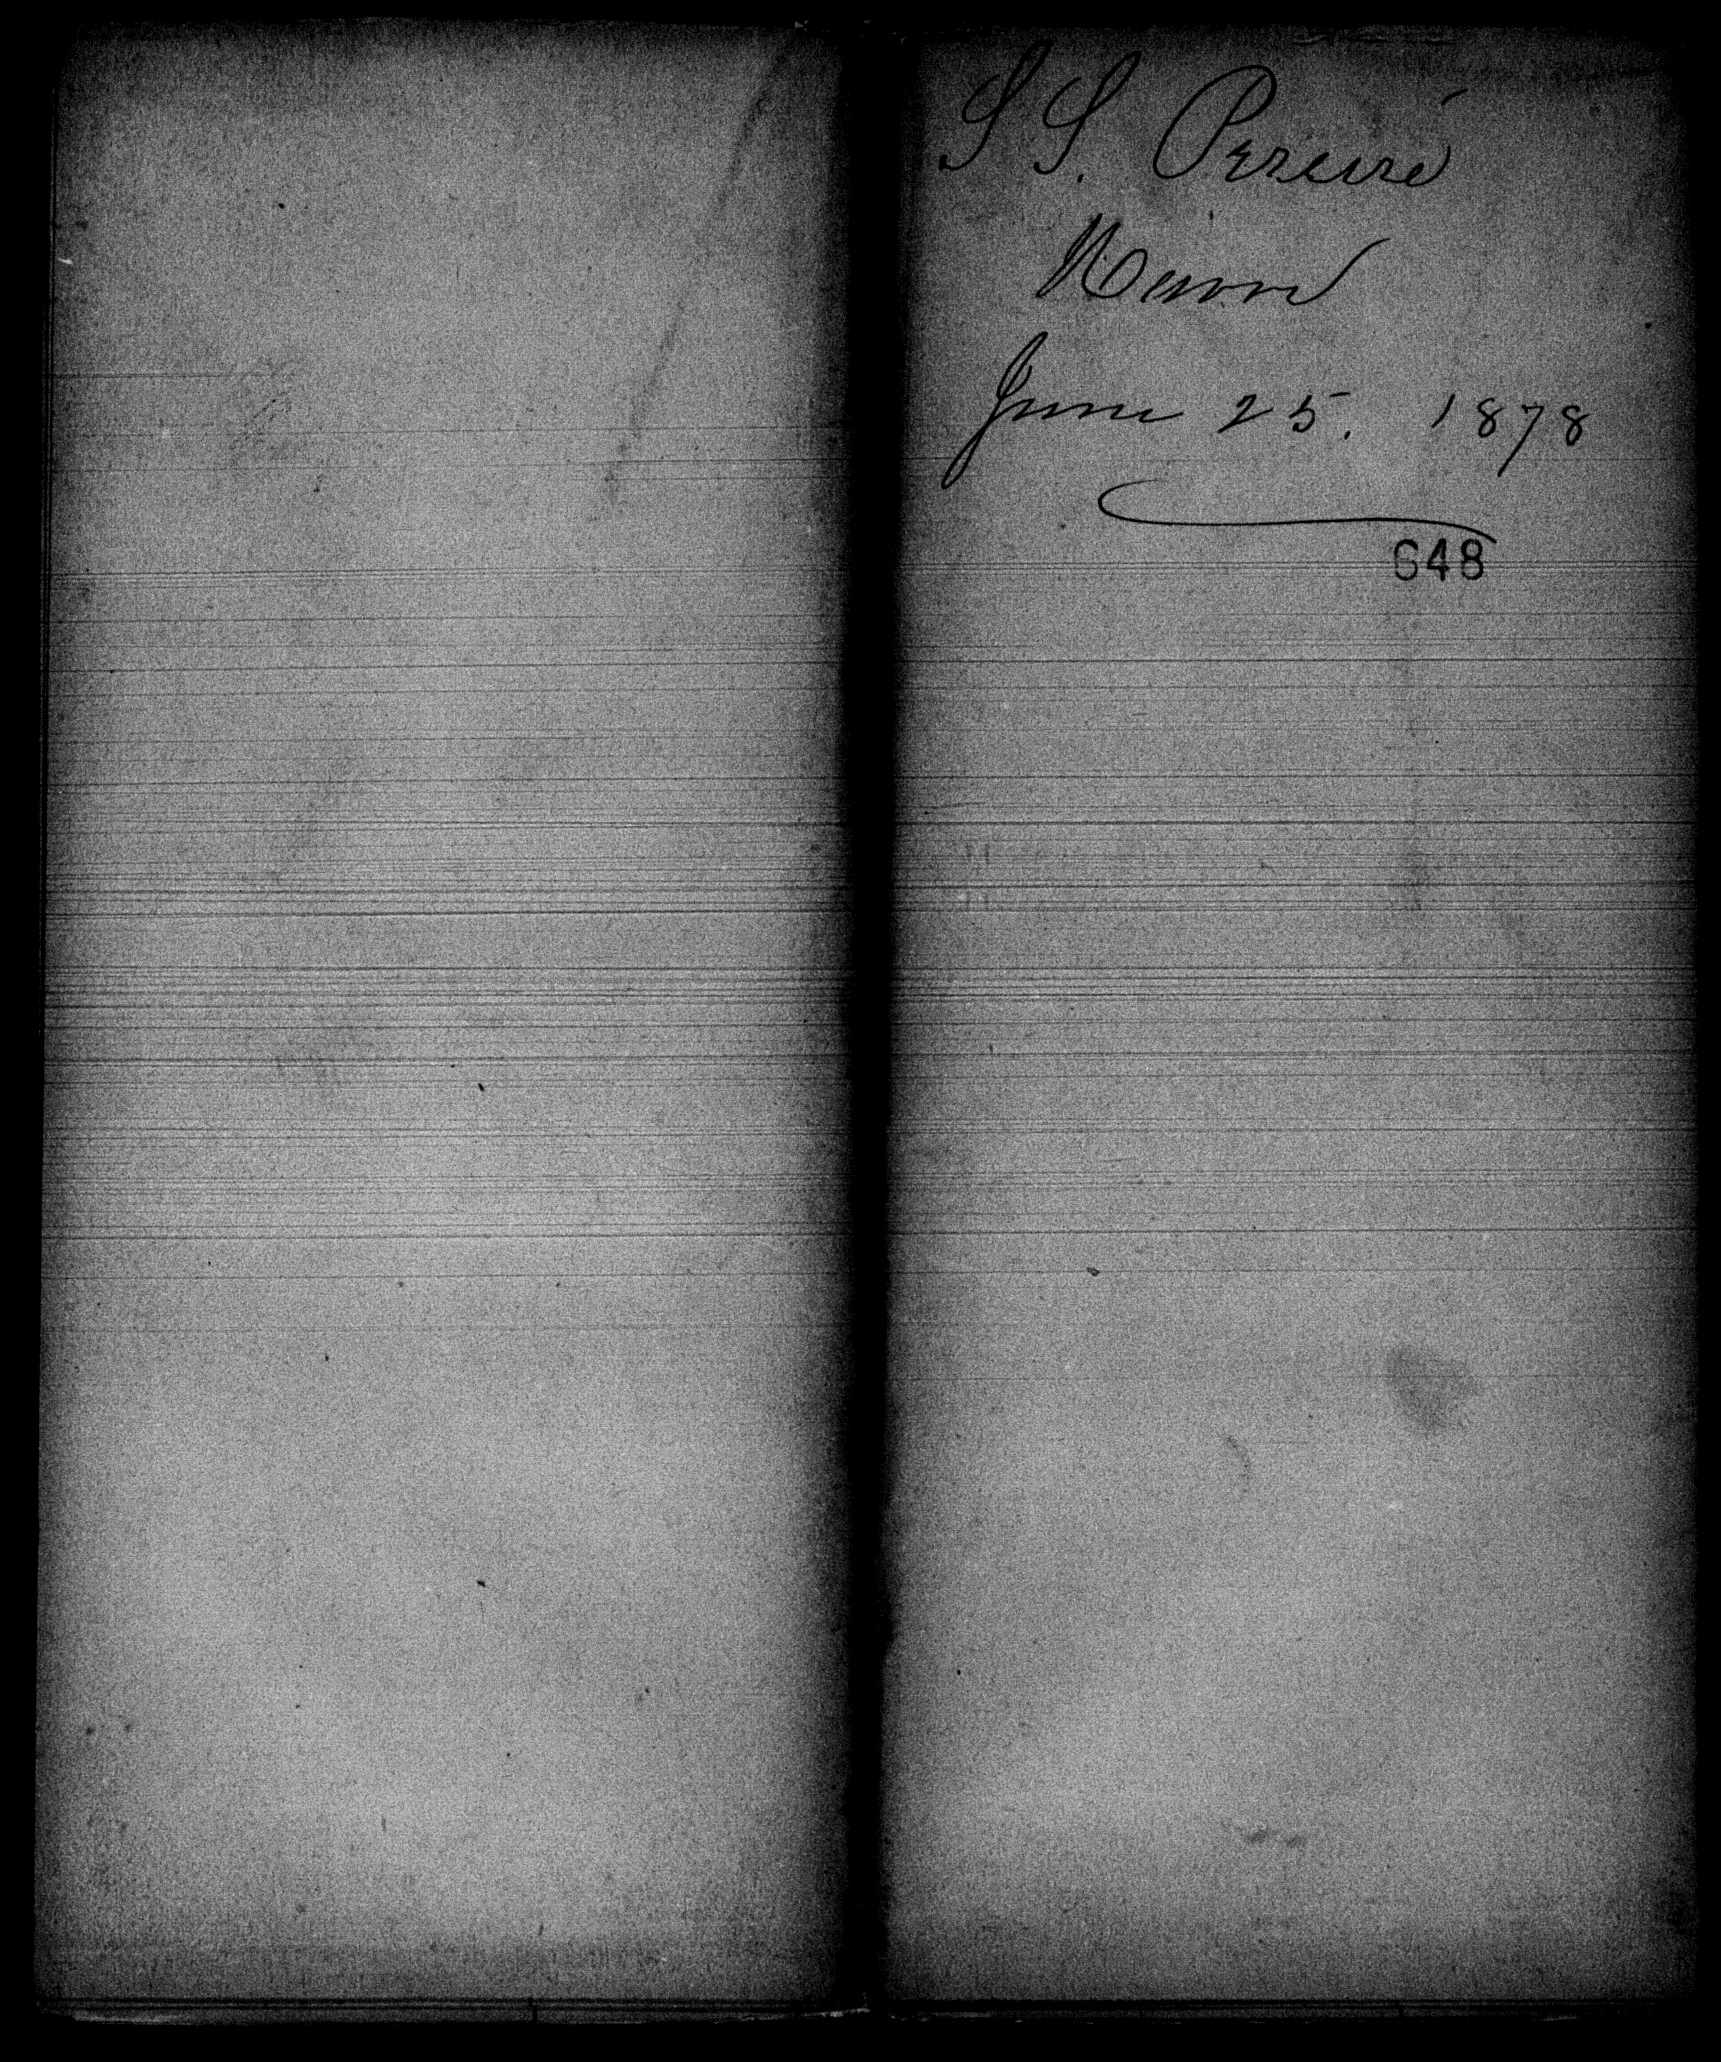 S S. Pereiré
Havre
June 25. 1878
648